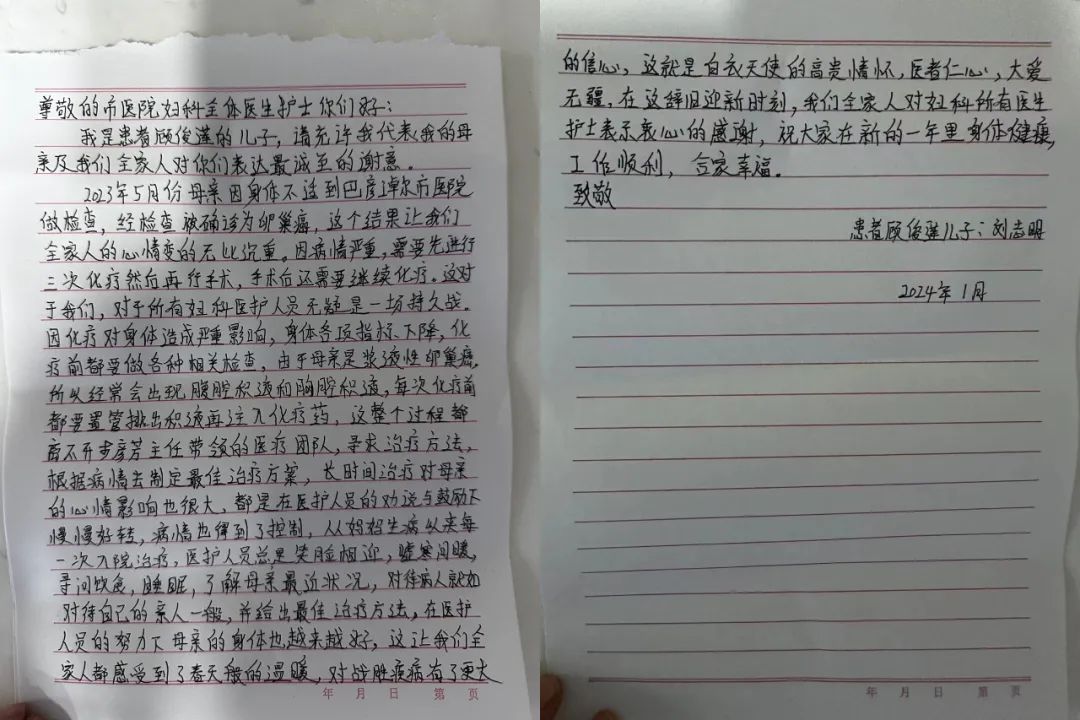 尊敬的市医院妇科全体医生护士你们好：
我是患者顾俊莲的儿子，请允许我代表我的母
亲及我们全家人对你们表达最诚至的谢意。
2023年5月份母亲因身体不适到巴彦淖尔市医院
做检查，经检查被确诊为卵巢癌，这个结果让我们
全家人的心情变的无比沉重。因病情严重，需要先进行
三次化疗然后再行手术，手术后还需要继续化疗。这对
于我们，对于所有妇科医护人员无疑是一场持久战。
因化疗对身体造成严重影响，身体各项指标下降，化
疗前都要做各种相关检查，由于母亲是浆液性卵巢癌，
所以经常会出现腹腔积液和胸腔积液，每次化疗前
都要置管排出积液再注入化疗药，这整个过程都
离不开步彦芳主任带领的医疗团队，寻求治疗方法，
根据病情去制定最佳治疗方案，长时间治疗对母亲
的心情影响也很大，都是在医护人员的劝说与鼓励下
慢慢好转，病情也得到了控制，从妈妈生病以来每
一次入院治疗，医护人员总是笑脸相迎，嘘寒问暖，
寻问饮食，睡眠，了解母亲最近状况，对待病人就如
对待自己的亲人一般，并给出最佳治疗方法，在医护
人员的努力下母亲的身体也越来越好，这让我们全
家人都感受到了春天般的温暖，对战胜疾病有了更大
年 月 日 第 页
的信心，这就是白衣天使的高贵情怀，医者仁心，大爱
无疆，在这辞旧迎新时刻，我们全家人对妇科所有医生
护士表示衷心的感谢，祝大家在新的一年里身体健康，
工作顺利，合家幸福。
致敬
患者顾俊莲儿子：刘志明
2024年1月
年 月 日 第 页